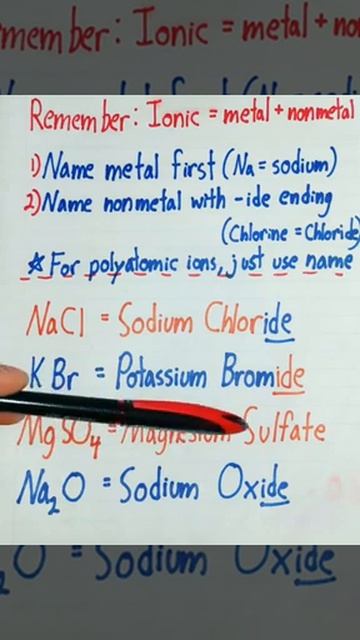 member: Ionic = metal + no
Remember: Ionic = metal + nonmetal
1) Name metal first (Na = sodium)
2) Name nonmetal with -ide ending
(Chlorine = Chloride
☆ For polyatomic ions, just use name
NaCl = Sodium Chloride
K Br = Potassium Bromide
MgSO₄ = Magnesium Sulfate
Na₂O = Sodium Oxide
₂O = Sodium Oxide